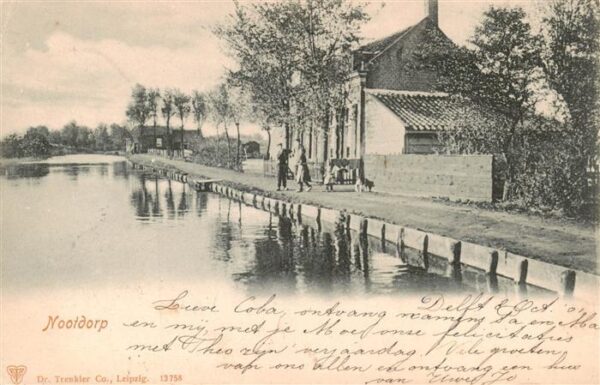 Nootdorp
Delft 8 Oct. 0
Lieve Coba, ontvang namens Pa en Ma
en mij met je Moe onze felicitaties
met Theo zijn verjaardag, de groeten
van ons allen en ontvang een kus
van
Dr. Trenkler Co., Leipzig. 12758